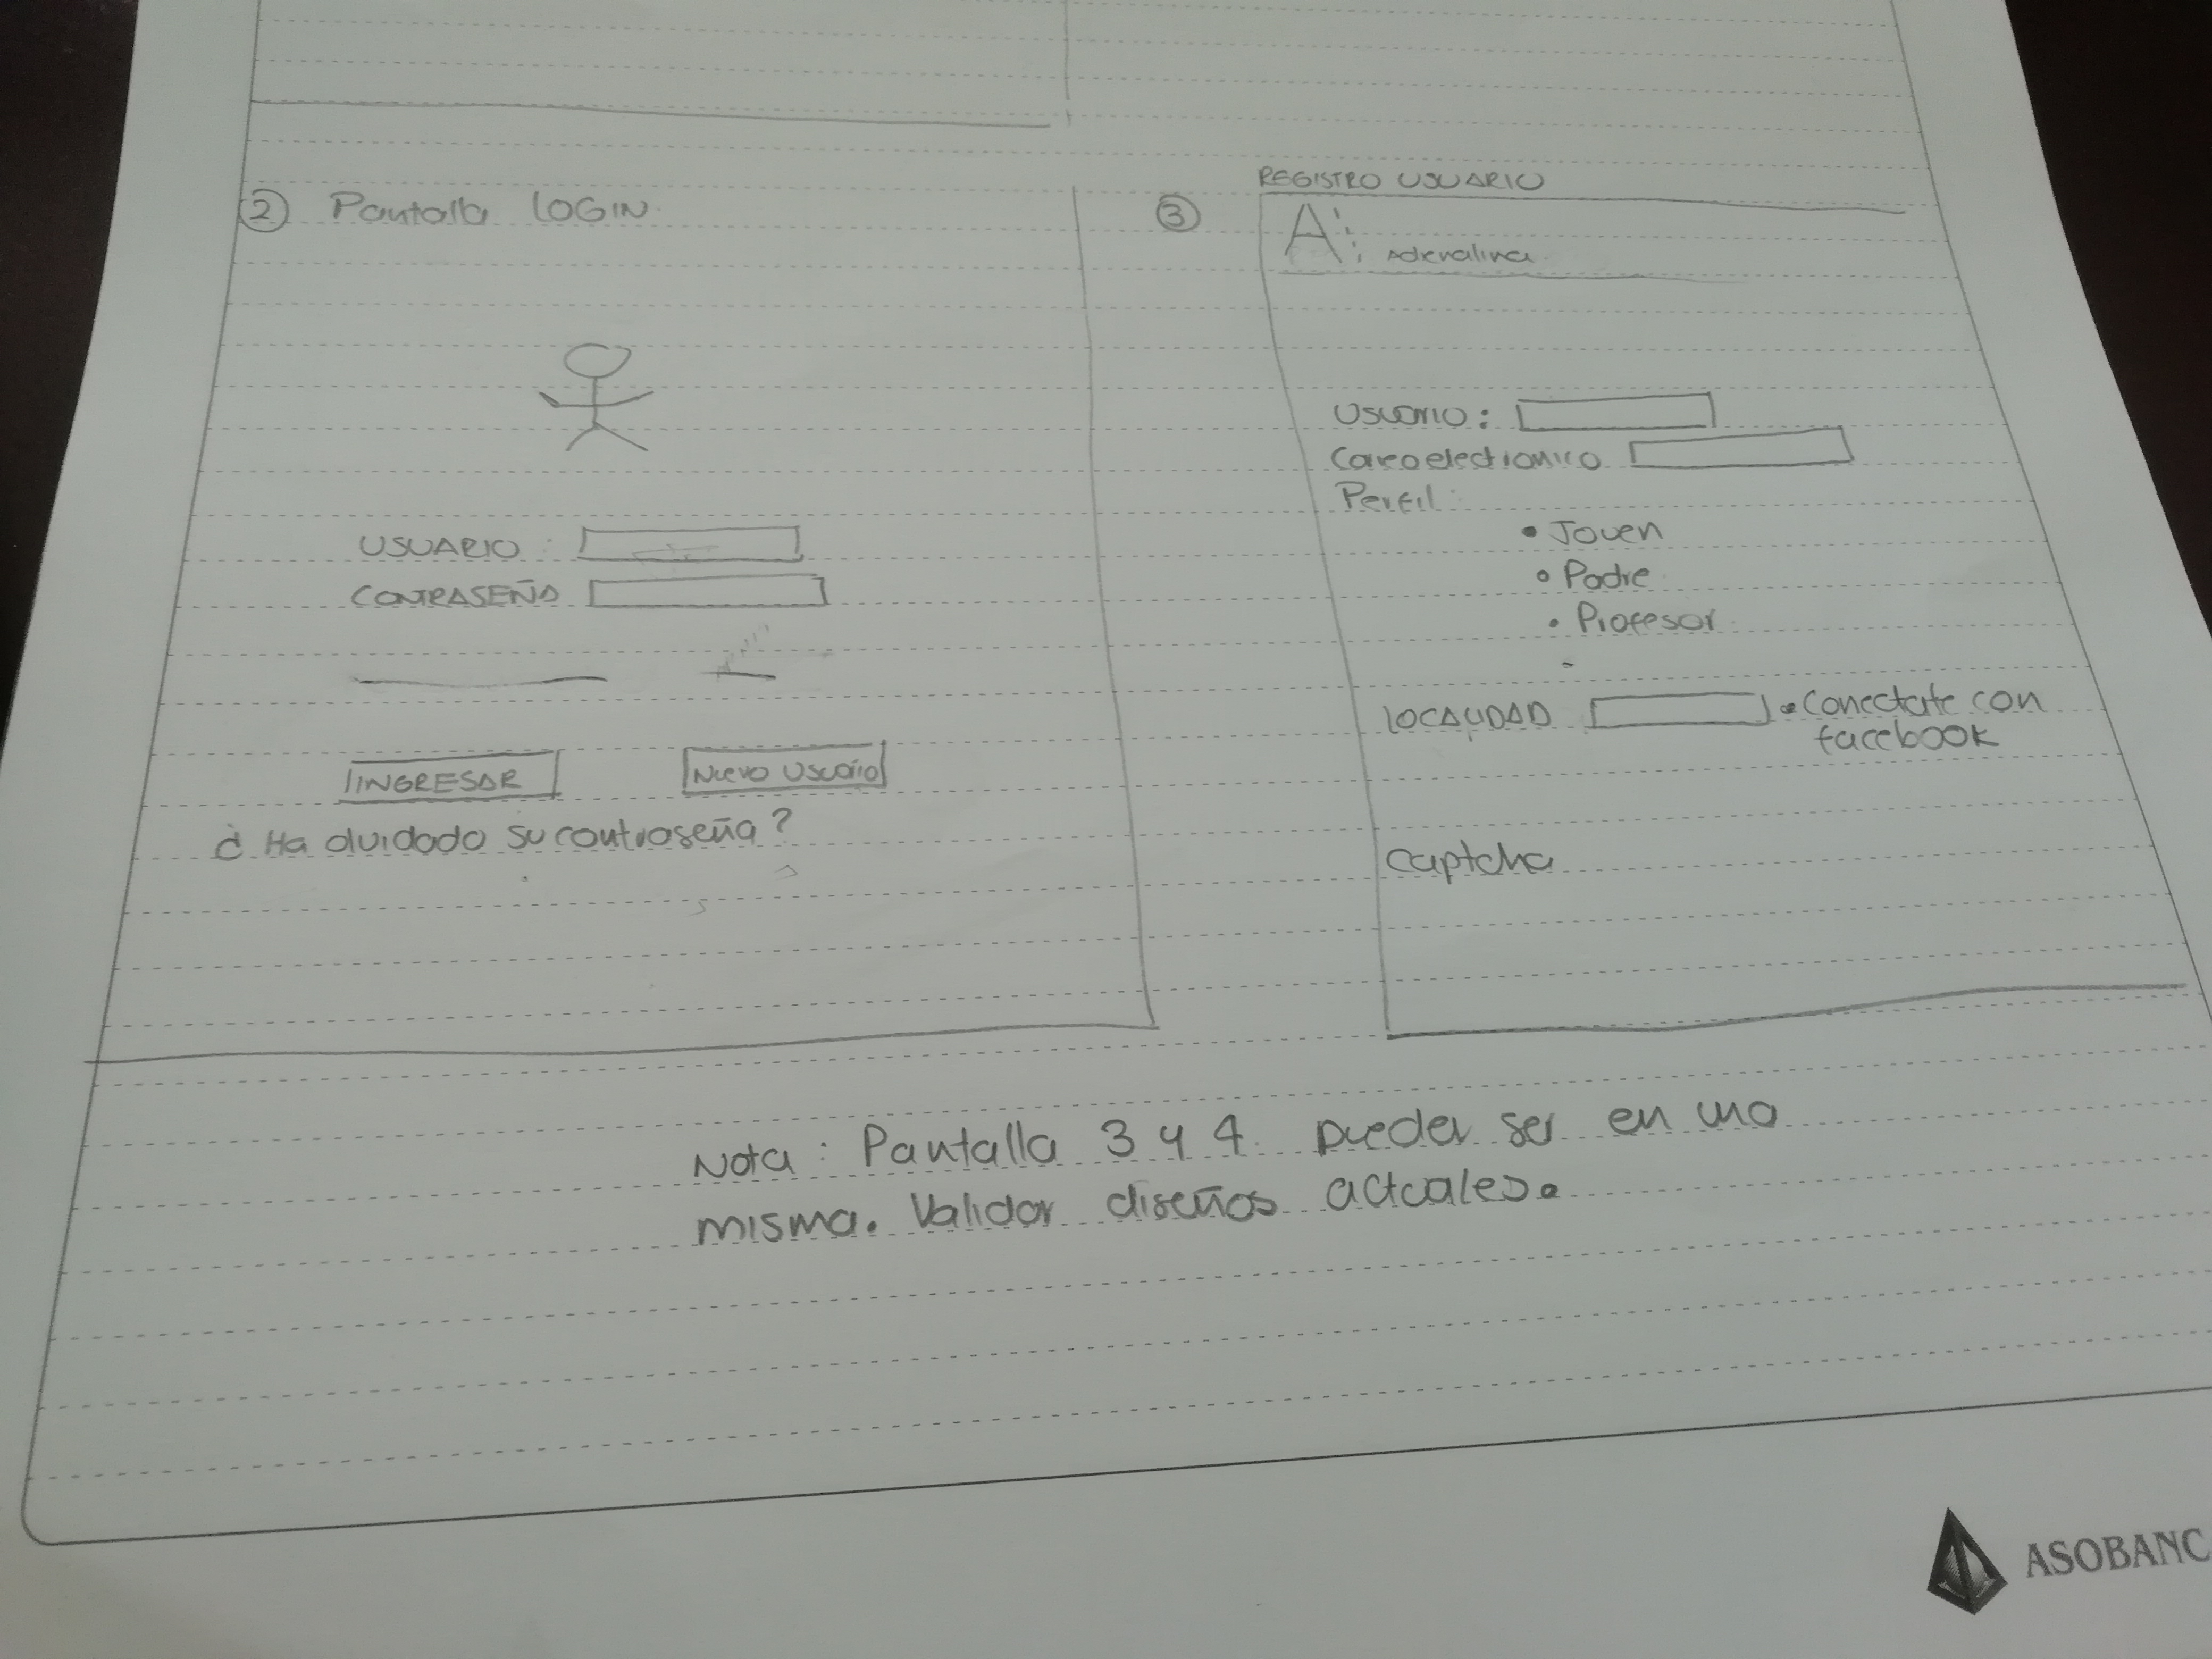 ② Pantalla LOGIN
USUARIO :
CONTRASEÑA
INGRESAR
Nuevo Usuario
¿ Ha olvidado su contraseña ?
③
REGISTRO USUARIO
A: Adrenalina
Usuario :
Correo electronico
Perfil :
• Joven
• Padre
• Profesor
LOCALIDAD
• Conectate con
facebook
Captcha
Nota : Pantalla 3 y 4 pueden ser en una
misma. Validar diseños actuales.
ASOBANC